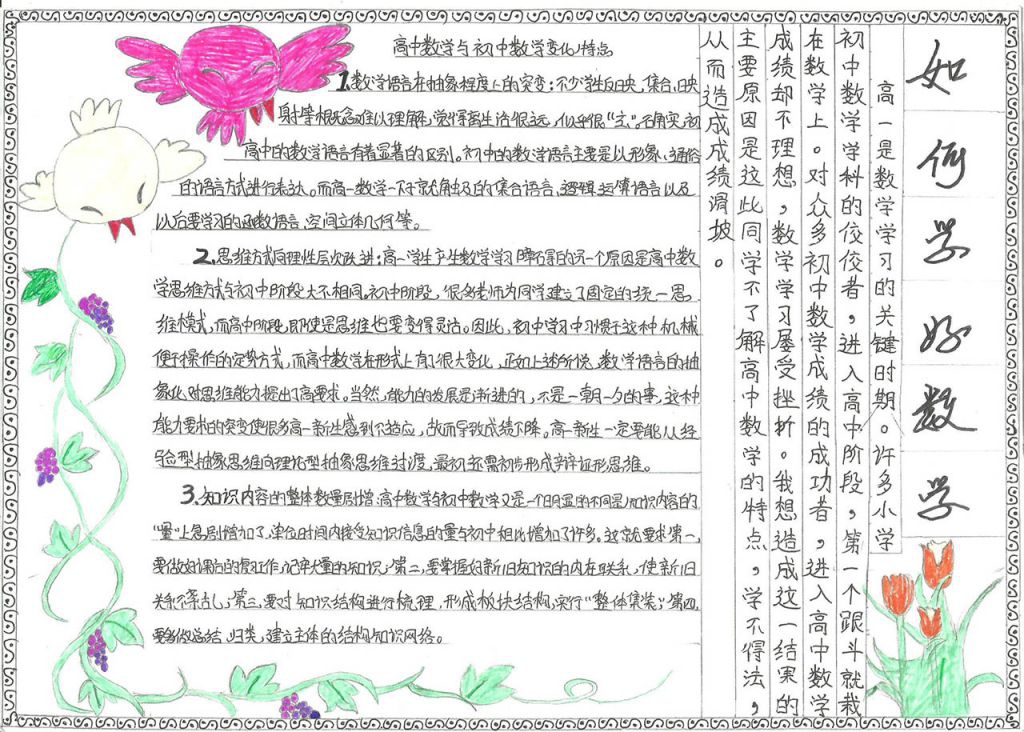 如何学好数学
高一是数学学习的关键时期。许多小学
初中数学学科的佼佼者，进入高中阶段，第一个跟斗就栽
在数学上。对众多初中数学成绩的成功者，进入高中数学
成绩却不理想，数学学习屡受挫折。我想造成这一结果的
主要原因是这此同学不了解高中数学的特点，学不得法，
从而造成成绩滑坡。
高中数学与初中数学变化特点
1.数学语言在抽象程度上的突变：不少学生反映，集合、映
射等概念难以理解，觉得离生活很远，似乎很"玄"。确实，初
高中的数学语言有着显著的区别。初中的数学语言主要是以形象、通俗
的语言方式进行表达。而高一数学一下子就触及的集合语言、逻辑运算语言以及
以后要学习的函数语言、空间立体几何等。
2.思维方式向理性层次跃进：高一学生产生数学学习障碍的另一个原因是高中数
学思维方式与初中阶段大不相同。初中阶段，很多老师为同学建立了固定的统一思
维模式，而高中阶段，即使是思维也要变得灵活。因此，初中学习中习惯于这种机械
便于操作的定势方式，而高中数学在形式上有了很大变化，正如上述所说，数学语言的抽
象化对思维能力提出了高要求。当然，能力的发展是渐进的，不是一朝一夕的事，这种
能力要求的突变使很多高一新生感到不适应，故而导致成绩下降。高一新生一定要能从经
验型抽象思维向理论型抽象思维过渡，最初还需初步形成辩证形思维。
3.知识内容的整体数量剧增：高中数学与初中数学又是一个明显的不同是知识内容的
"量"上急剧增加了，单位时间内接受知识信息的量与初中相比增加了许多。这就要求第一，
要做好课后的复习工作，记牢大量的知识；第二，要掌握好新旧知识的内在联系，使新旧
关系不紊乱；第三，要对知识结构进行梳理，形成板块结构，实行"整体集装"；第四，
要多做总结、归类，建立主体的结构知识网络。